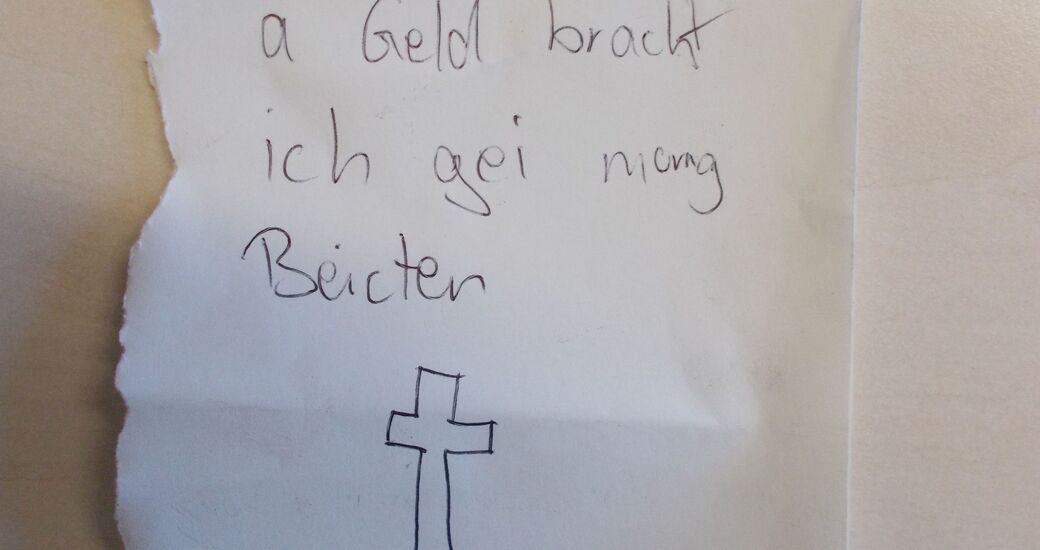 a Geld bracht
ich gei morng
Beicten